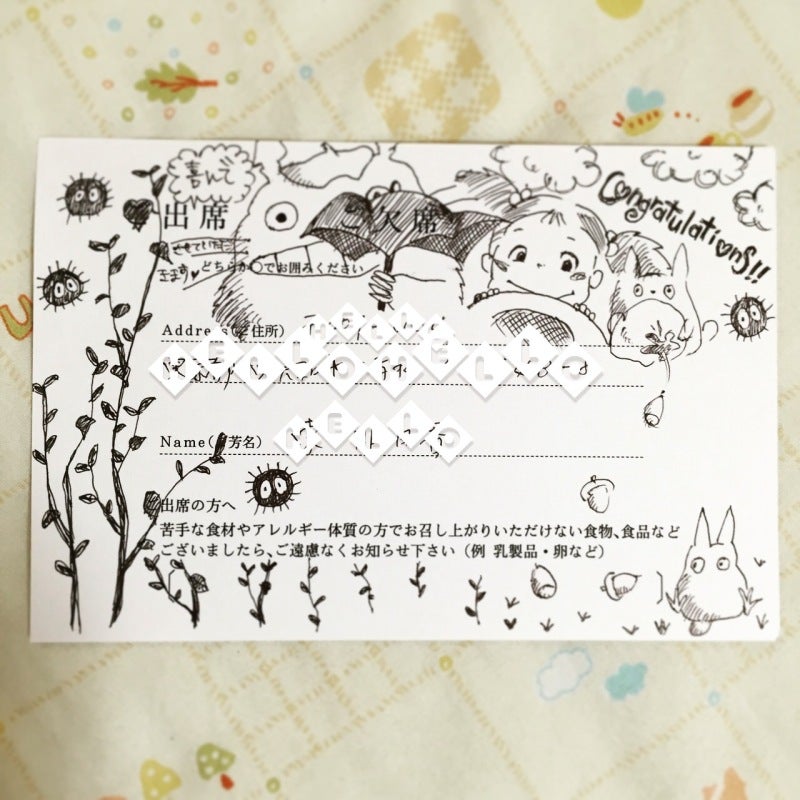 喜んで
Congratulations!!
出席 ご欠席
させていただ
きます♥ どちらか○でお囲みください
Address(ご住所)
HELLO HELLO HELLO
Name(ご芳名)
HELLO
出席の方へ
苦手な食材やアレルギー体質の方でお召し上がりいただけない食物、食品など
ございましたら、ご遠慮なくお知らせ下さい (例 乳製品・卵など)